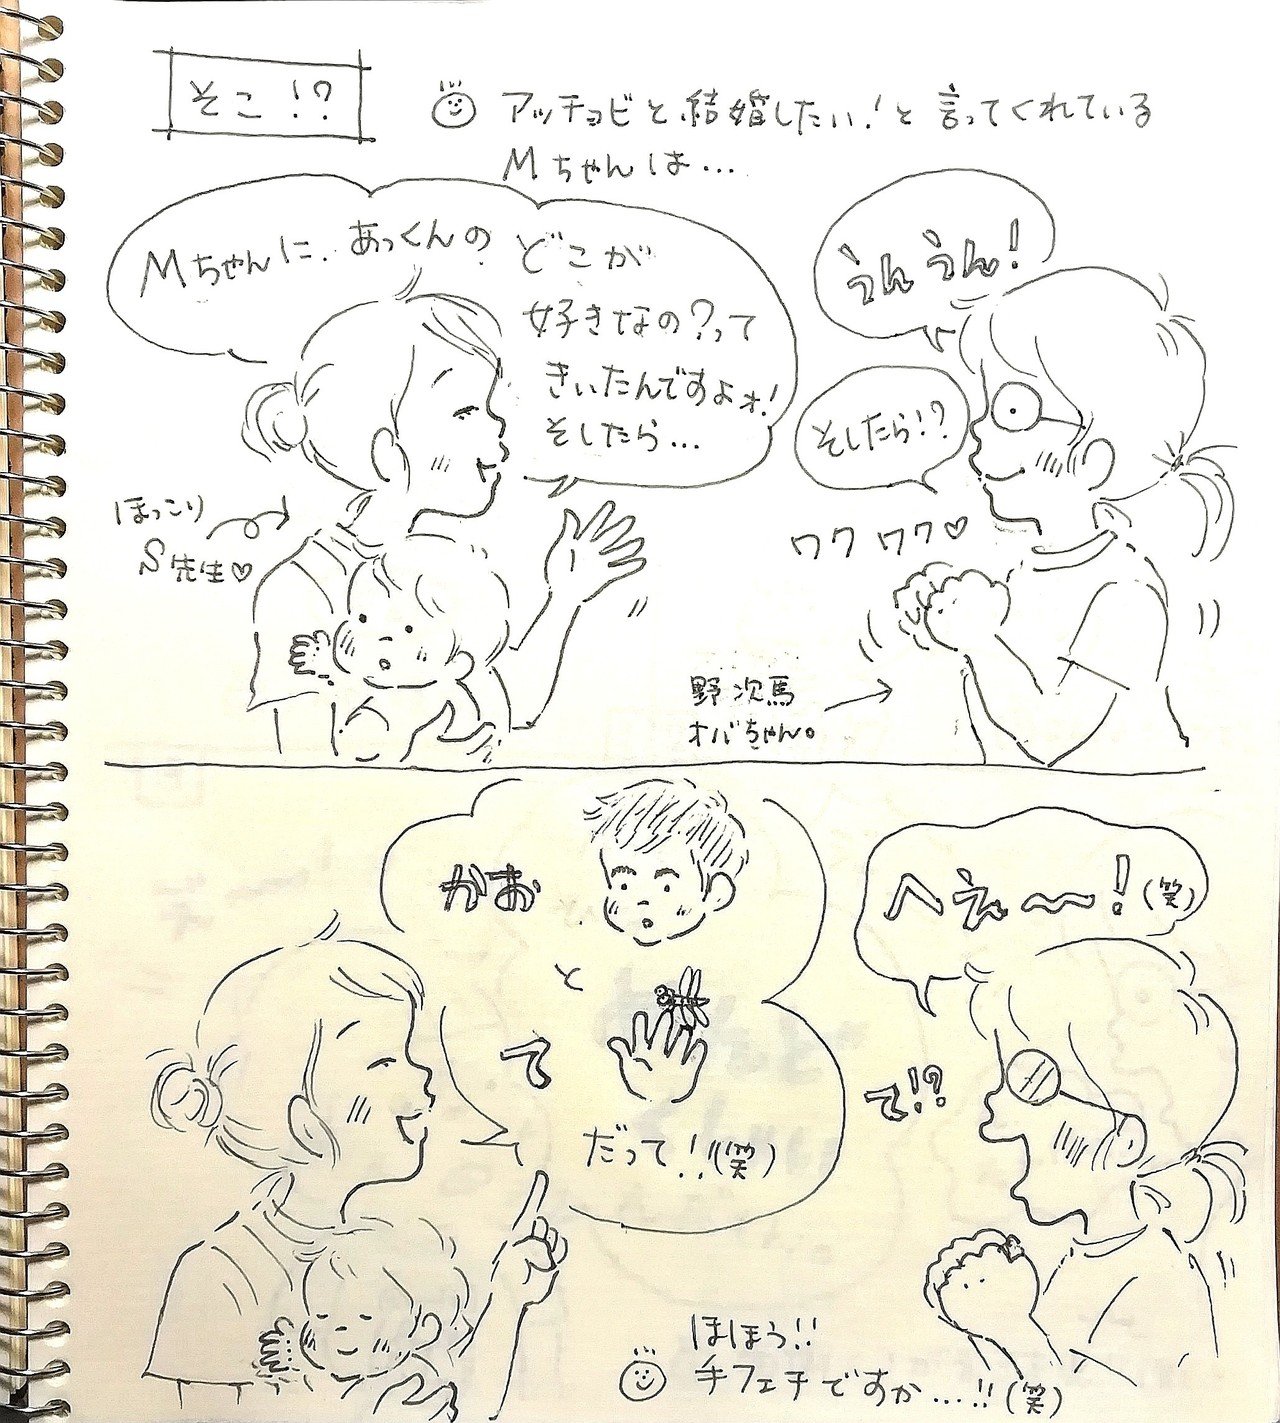 そこ!?
アッチョビと結婚したい!と言ってくれている
Mちゃんは…
Mちゃんに、あっくんの
どこが
好きなの?って
きいたんですよォ!
そしたら…
うんうん!
そしたら!?
ワクワク♡
ほっこり
S先生♡
野次馬
オバちゃん。
かお
と
て
だって!!(笑)
へえ〜〜!(笑)
て!?
ほほう!!
手フェチですか…!!(笑)